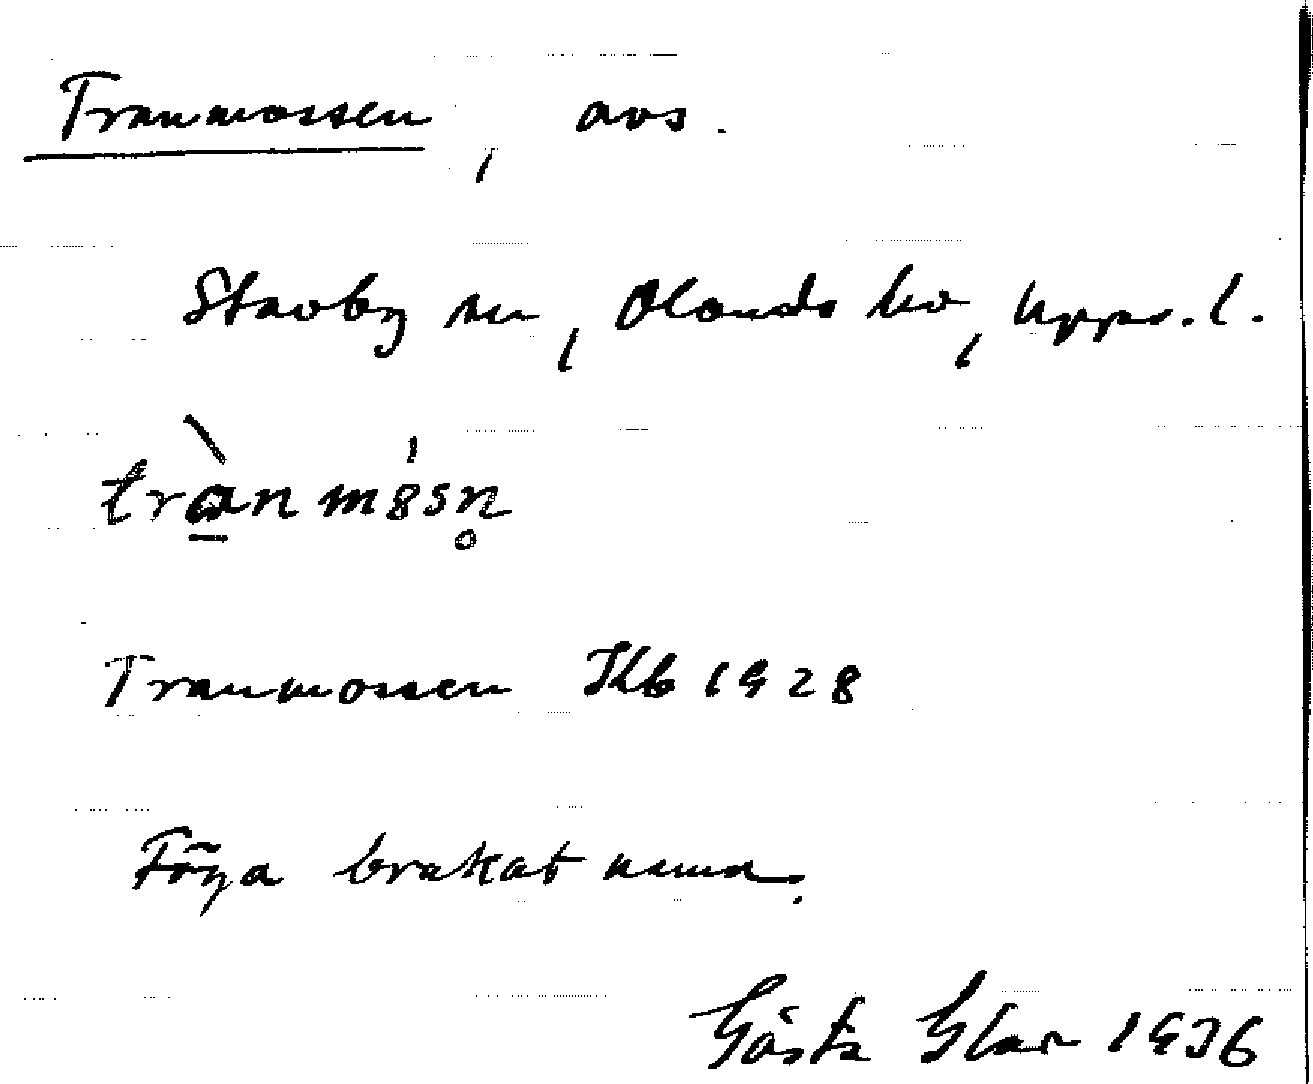 Tranmossen, avs.
Stavby sn, Olands hd, Upps. l.
trànmósn̥
Tranmossen Jkb 1928
Föga brukat namn.
Gösta Glar 1936